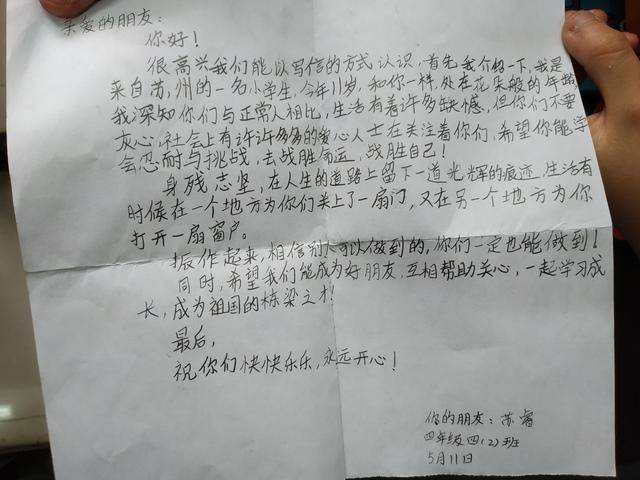 亲爱的朋友：
你好！
很高兴我们能以写信的方式认识，首先我介绍一下，我是
来自苏州的一名小学生，今年11岁，和你一样，处在花朵般的年龄
我深知你们与正常人相比，生活有着许多缺憾，但你们不要
灰心，社会上有许许多多的爱心人士在关注着你们，希望你能学
会忍耐与挑战，去战胜命运，战胜自己！
身残志坚，在人生的道路上留下一道光辉的痕迹，生活有
时候在一个地方为你们关上了一扇门，又在另一个地方为你
打开一扇窗户。
振作起来，相信别人可以做到的，你们一定也能做到！
同时，希望我们能成为好朋友，互相帮助关心，一起学习成
长，成为祖国的栋梁之才！
最后，
祝你们快快乐乐，永远开心！
你的朋友：苏睿
四年级四(2)班
5月11日